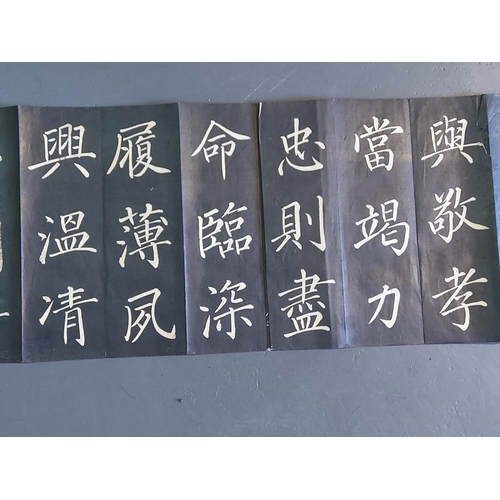 與敬孝
當竭力
忠則盡
命臨深
履薄夙
興溫凊